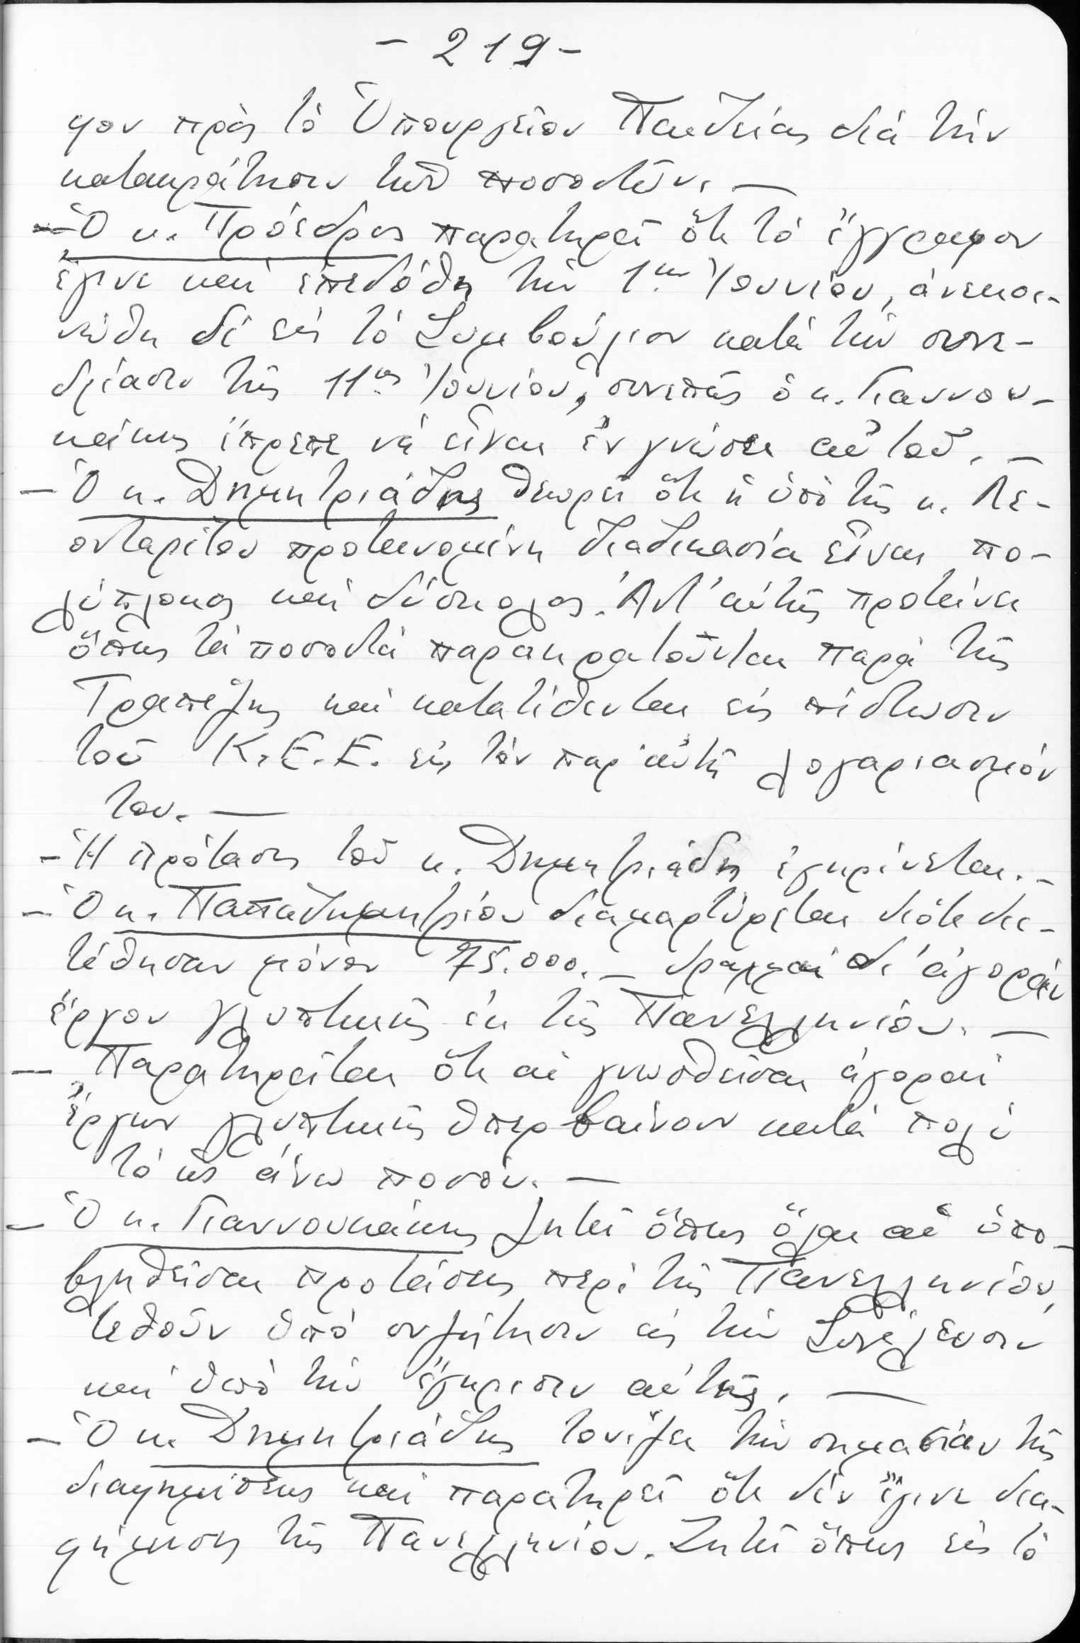 - 219 -
φον πρὸς τὸ Ὑπουργεῖον Παιδείας διὰ τὴν
κατακράτησιν τῶν ποσοστῶν. —
— Ὁ κ. Πρόεδρος παρατηρεῖ ὅτι τὸ ἔγγραφον
ἔγινε καὶ ἐπεδόθη τὴν 1ην Ἰουνίου, ἀνεκοι-
νώθη δὲ εἰς τὸ Συμβούλιον κατὰ τὴν συνε-
δρίασιν τῆς 11ης Ἰουνίου, συνεπῶς ὁ κ. Γιαννου-
κάκης ἔπρεπε νὰ εἶναι ἐν γνώσει αὐτοῦ. —
— Ὁ κ. Δημητριάδης θεωρεῖ ὅτι ἡ ὑπὸ τῆς κ. Λε-
ονταρίτου προτεινομένη διαδικασία εἶναι πο-
λύπλοκος καὶ δύσκολος. Ἀντ' αὐτῆς προτείνει
ὅπως τὰ ποσοστὰ παρακρατοῦνται παρὰ τῆς
Τραπέζης καὶ κατατίθενται εἰς πίστωσιν
τοῦ Κ.Ε.Ε. εἰς τὸν παρ' αὐτῇ λογαριασμόν
του. —
— Ἡ πρότασις τοῦ κ. Δημητριάδη ἐγκρίνεται. —
— Ὁ κ. Παπαδημητρίου διαμαρτύρεται διότι διε-
τέθησαν μόνον 75.000. — δραχμαὶ δι' ἀγορὰν
ἔργων γλυπτικῆς ἐκ τῆς Πανελληνίου. —
— Παρατηρεῖται ὅτι αἱ γνωσθεῖσαι ἀγοραὶ
ἔργων γλυπτικῆς ὑπερβαίνουν κατὰ πολὺ
τὸ ὡς ἄνω ποσόν. —
— Ὁ κ. Γιαννουκάκης ζητεῖ ὅπως ὅλαι αἱ ὑπο-
βληθεῖσαι προτάσεις περὶ τῆς Πανελληνίου,
τεθοῦν ὑπὸ συζήτησιν εἰς τὴν Συνέλευσιν
καὶ ὑπὸ τὴν ἔγκρισιν αὐτῆς. —
— Ὁ κ. Δημητριάδης τονίζει τὴν σημασίαν τῆς
διαφημίσεως καὶ παρατηρεῖ ὅτι δὲν ἔγινε δια-
φήμισις τῆς Πανελληνίου. Ζητεῖ ὅπως εἰς τὸ